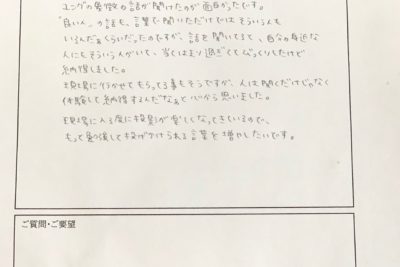 ユングの象徴の話が聞けたのが面白かったです。
"良い人"の話も、言葉で聞いただけではそういう人も
いるんだぁくらいだったのですが、話を聞いてると、自分の身近な
人にもそういう人がいて、当てはまり過ぎててびっくりしたけど
納得しました。
現場に行かせてもらってる事もそうですが、人は聞くだけじゃなく
体験して納得するんだなぁと心から思いました。
現場に入る度に投影が楽しくなってきているので、
もっと勉強して投げかけられる言葉を増やしたいです。
ご質問・ご要望